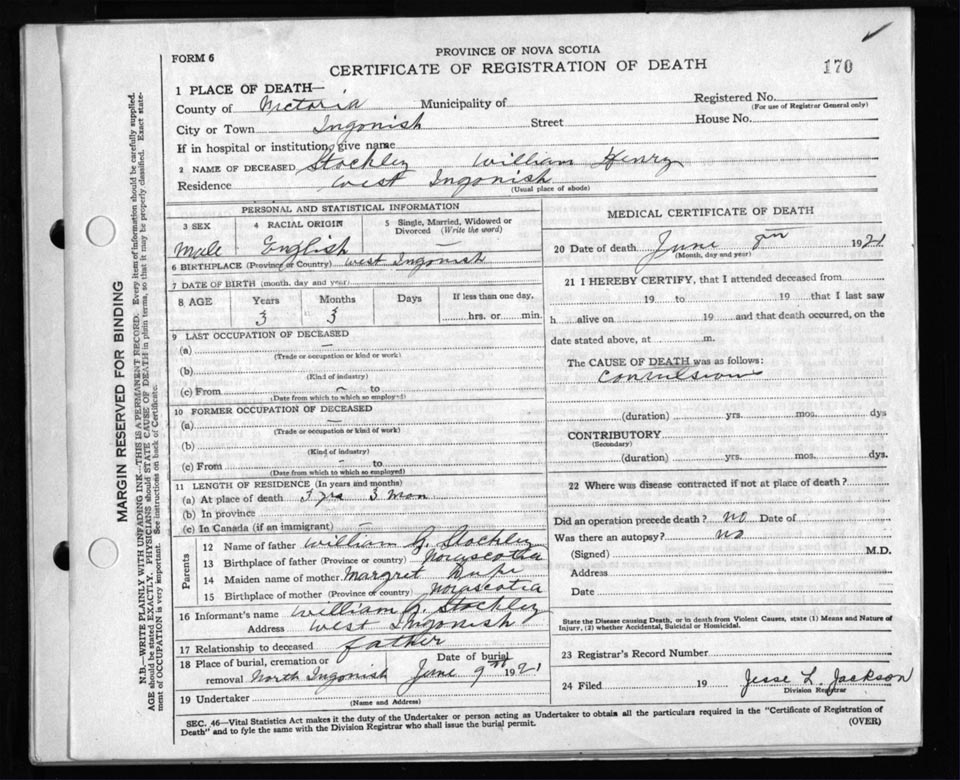 PROVINCE OF NOVA SCOTIA
FORM 6
CERTIFICATE OF REGISTRATION OF DEATH
170
1 PLACE OF DEATH—
County of Victoria Municipality of Registered No.
(For use of Registrar General only)
City or Town Ingonish Street House No.
If in hospital or institution, give name
2 NAME OF DECEASED Stockley William Henry
Residence West Ingonish
(Usual place of abode)
PERSONAL AND STATISTICAL INFORMATION
3 SEX 4 RACIAL ORIGIN 5 Single, Married, Widowed or Divorced (Write the word)
Male English —
6 BIRTHPLACE (Province or Country) West Ingonish
7 DATE OF BIRTH (month, day and year)
8 AGE Years Months Days If less than one day,
3 3 hrs. or min.
9 LAST OCCUPATION OF DECEASED
(a) —
(Trade or occupation or kind of work)
(b)
(Kind of industry)
(c) From to
(Date from which to which so employed)
10 FORMER OCCUPATION OF DECEASED
(a) —
(Trade or occupation or kind of work)
(b)
(Kind of industry)
(c) From to
(Date from which to which so employed)
11 LENGTH OF RESIDENCE (In years and months)
(a) At place of death 3 yrs 3 mon
(b) In province
(c) In Canada (if an immigrant) —
Parents
12 Name of father William G. Stockley
13 Birthplace of father (Province or country) Novascotia
14 Maiden name of mother Margret
15 Birthplace of mother (Province or country) Novascotia
16 Informant's name William G. Stockley
Address West Ingonish
17 Relationship to deceased father
18 Place of burial, cremation or Date of burial
removal North Ingonish June 9th 1921
19 Undertaker
(Name and Address)
MEDICAL CERTIFICATE OF DEATH
20 Date of death June 1921
(Month, day and year)
21 I HEREBY CERTIFY, that I attended deceased from
19 to 19 that I last saw
h alive on 19 and that death occurred, on the
date stated above, at m.
The CAUSE OF DEATH was as follows:
Convulsions
(duration) yrs. mos. dys
CONTRIBUTORY
(Secondary)
(duration) yrs. mos. dys.
22 Where was disease contracted if not at place of death?
Did an operation precede death? no Date of
Was there an autopsy? no
(Signed) M.D.
Address
Date
State the Disease causing Death, or in death from Violent Causes, state (1) Means and Nature of
Injury, (2) whether Accidental, Suicidal or Homicidal.
23 Registrar's Record Number
24 Filed 19 Jesse L. Jackson
Division Registrar
SEC. 46—Vital Statistics Act makes it the duty of the Undertaker or person acting as Undertaker to obtain all the particulars required in the "Certificate of Registration of
Death" and to fyle the same with the Division Registrar who shall issue the burial permit. (OVER)
MARGIN RESERVED FOR BINDING
N.B.—WRITE PLAINLY WITH UNFADING INK—THIS IS A PERMANENT RECORD. Every item of information should be carefully supplied.
AGE should be stated EXACTLY. PHYSICIANS should STATE CAUSE OF DEATH in plain terms, so that it may be properly classified. Exact state-
ment of OCCUPATION is very important. See instructions on back of Certificate.